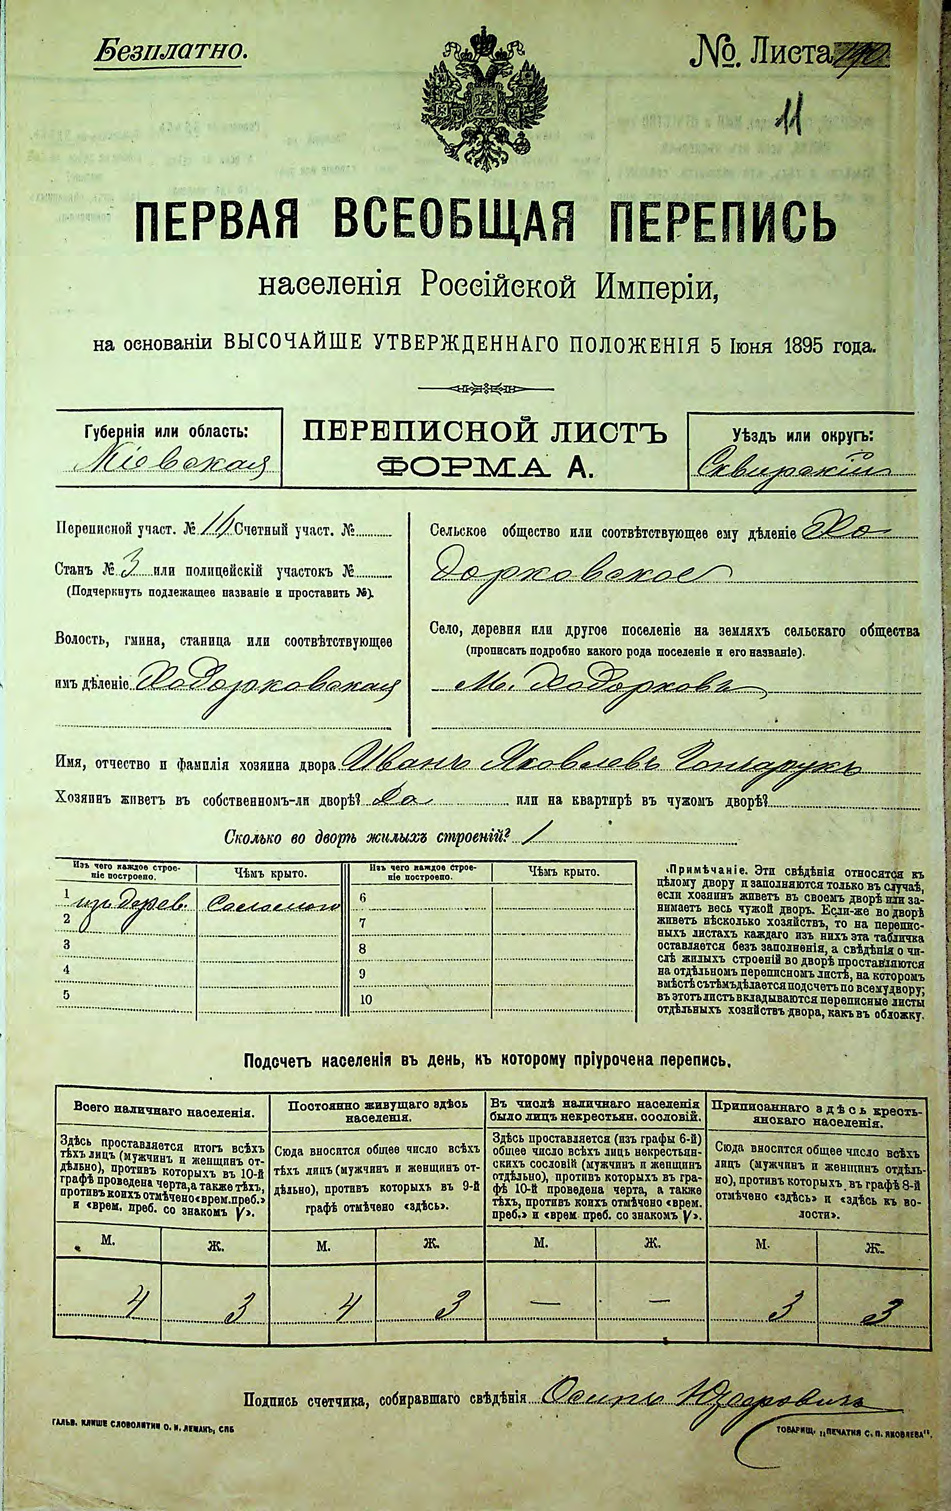 Безплатно.
№. Листа
11
ПЕРВАЯ ВСЕОБЩАЯ ПЕРЕПИСЬ
населенія Россійской Имперіи,
на основаніи ВЫСОЧАЙШЕ УТВЕРЖДЕННАГО ПОЛОЖЕНІЯ 5 Іюня 1895 года.
Губернія или область:
Кіевская
ПЕРЕПИСНОЙ ЛИСТЪ
ФОРМА А.
Уѣздъ или округъ:
Сквирскій
Переписной участ. № Счетный участ. №
Станъ № 3 или полицейскій участокъ №
(Подчеркнуть подлежащее названіе и проставить №).
Волость, гмина, станица или соотвѣтствующее
имъ дѣленіе Ходорковская
Сельское общество или соотвѣтствующее ему дѣленіе Хо
дорковское
Село, деревня или другое поселеніе на земляхъ сельскаго общества
(прописать подробно какого рода поселеніе и его названіе).
М. Ходорковъ
Имя, отчество и фамилія хозяина двора Иванъ Яковлевъ Гончарукъ
Хозяинъ живетъ въ собственномъ-ли дворѣ? Да или на квартирѣ въ чужомъ дворѣ?
Сколько во дворѣ жилыхъ строеній? 1
Изъ чего каждое строе-
ніе построено.
Чѣмъ крыто.
1 изъ дерев. Соломою
2
3
4
5
Изъ чего каждое строе-
ніе построено.
Чѣмъ крыто.
6
7
8
9
10
Примѣчаніе. Эти свѣдѣнія относятся къ
цѣлому двору и заполняются только въ случаѣ,
если хозяинъ живетъ въ своемъ дворѣ или за-
нимаетъ весь чужой дворъ. Если-же во дворѣ
живетъ нѣсколько хозяйствъ, то на перепис-
ныхъ листахъ каждаго изъ нихъ эта табличка
оставляется безъ заполненія, а свѣдѣнія о чи-
слѣ жилыхъ строеній во дворѣ проставляются
на отдѣльномъ переписномъ листѣ, на которомъ
вмѣстѣ съ тѣмъ дѣлается подсчетъ по всему двору;
въ этотъ листъ вкладываются переписные листы
отдѣльныхъ хозяйствъ двора, какъ въ обложку.
Подсчетъ населенія въ день, къ которому пріурочена перепись.
Всего наличнаго населенія.
Здѣсь проставляется итогъ всѣхъ
тѣхъ лицъ (мужчинъ и женщинъ от-
дѣльно), противъ которыхъ въ 10-й
графѣ проведена черта, а также тѣхъ,
противъ коихъ отмѣчено «врем. преб.»
и «врем. преб. со знакомъ V».
М. Ж.
4 3
Постоянно живущаго здѣсь
населенія.
Сюда вносится общее число всѣхъ
тѣхъ лицъ (мужчинъ и женщинъ от-
дѣльно), противъ которыхъ въ 9-й
графѣ отмѣчено «здѣсь».
М. Ж.
4 3
Въ числѣ наличнаго населенія
было лицъ некрестьян. сословій.
Здѣсь проставляется (изъ графы 6-й)
общее число всѣхъ лицъ некрестьян-
скихъ сословій (мужчинъ и женщинъ
отдѣльно), противъ которыхъ въ гра-
фѣ 10-й проведена черта, а также
тѣхъ, противъ коихъ отмѣчено «врем.
преб.» и «врем. преб. со знакомъ V».
М. Ж.
— —
Приписаннаго здѣсь кресть-
янскаго населенія.
Сюда вносится общее число всѣхъ
лицъ (мужчинъ и женщинъ отдѣль-
но), противъ которыхъ въ графѣ 8-й
отмѣчено «здѣсь» и «здѣсь къ во-
лости».
М. Ж.
3 3
Подпись счетчика, собиравшаго свѣдѣнія Осипъ
ГАЛЬВ. КЛИШЕ СЛОВОЛИТНИ О. И. ЛЕМАНЪ, СПБ
ТОВАРИЩ. „ПЕЧАТНЯ С. П. ЯКОВЛЕВА".